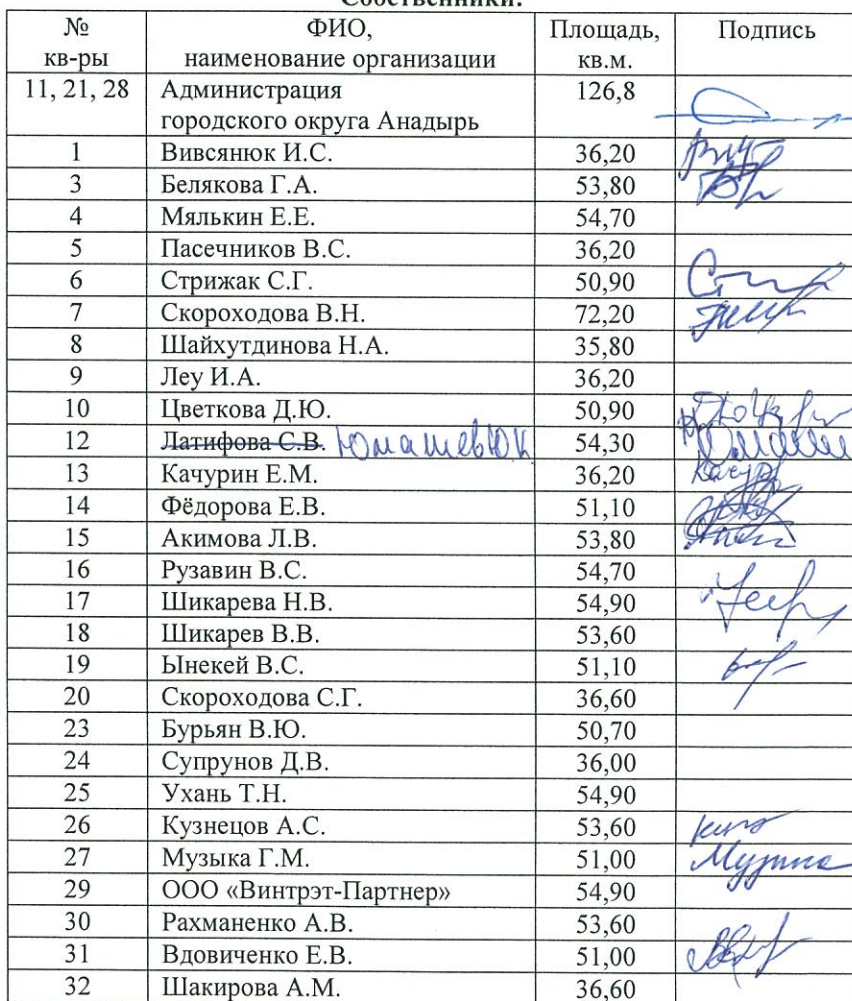 Собственники:
№ кв-ры ФИО, наименование организации Площадь, кв.м. Подпись
11, 21, 28 Администрация городского округа Анадырь 126,8
1 Вивсянюк И.С. 36,20
3 Белякова Г.А. 53,80
4 Мялькин Е.Е. 54,70
5 Пасечников В.С. 36,20
6 Стрижак С.Г. 50,90
7 Скороходова В.Н. 72,20
8 Шайхутдинова Н.А. 35,80
9 Леу И.А. 36,20
10 Цветкова Д.Ю. 50,90
12 Латифова С.В. 54,30
13 Качурин Е.М. 36,20
14 Фёдорова Е.В. 51,10
15 Акимова Л.В. 53,80
16 Рузавин В.С. 54,70
17 Шикарева Н.В. 54,90
18 Шикарев В.В. 53,60
19 Ынекей В.С. 51,10
20 Скороходова С.Г. 36,60
23 Бурьян В.Ю. 50,70
24 Супрунов Д.В. 36,00
25 Ухань Т.Н. 54,90
26 Кузнецов А.С. 53,60
27 Музыка Г.М. 51,00
29 ООО «Винтрэт-Партнер» 54,90
30 Рахманенко А.В. 53,60
31 Вдовиченко Е.В. 51,00
32 Шакирова А.М. 36,60